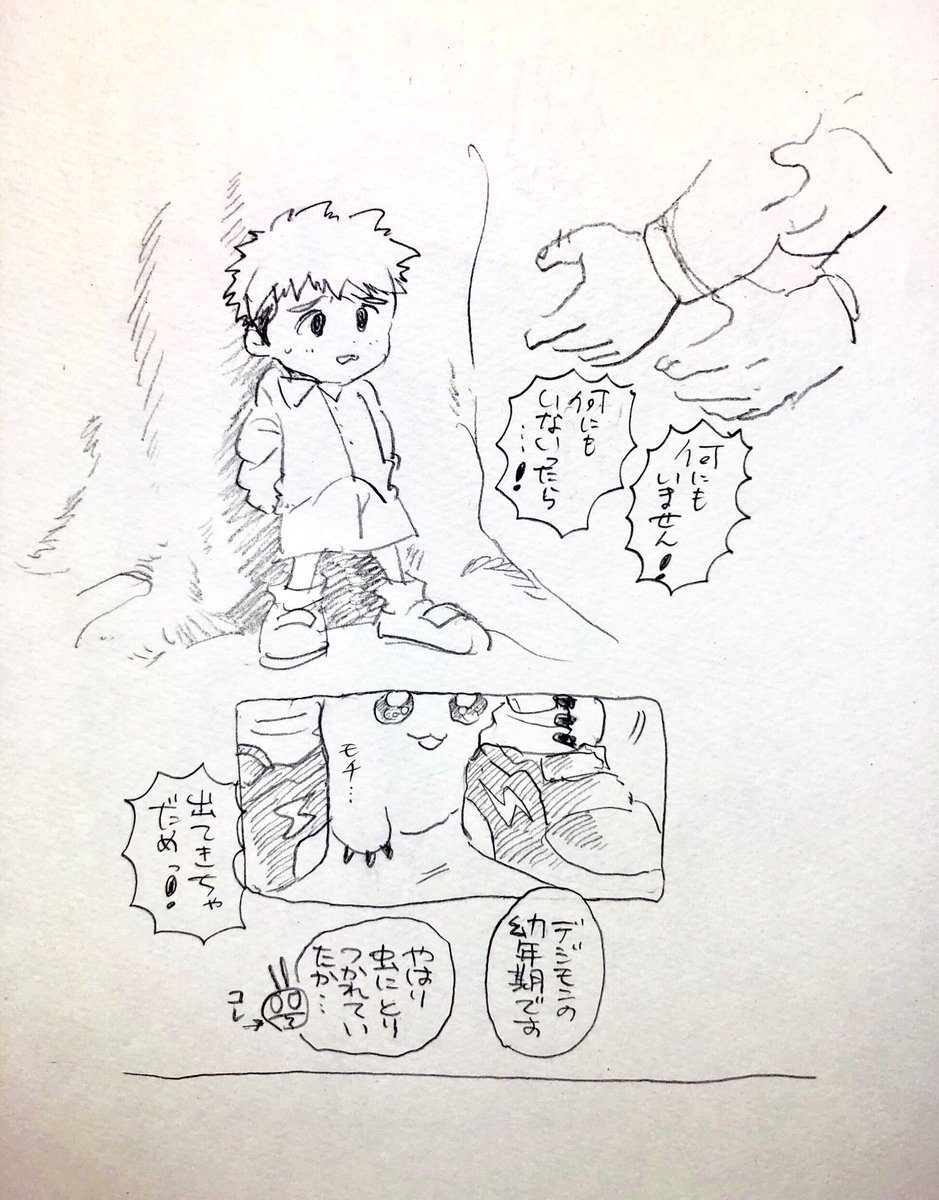 何にも
いません!
何にも
いないったら
…!
モチ…
出てきちゃ
だめっ!
デジモンの
幼年期です
やはり
虫にとり
つかれてい
たか…
コレ